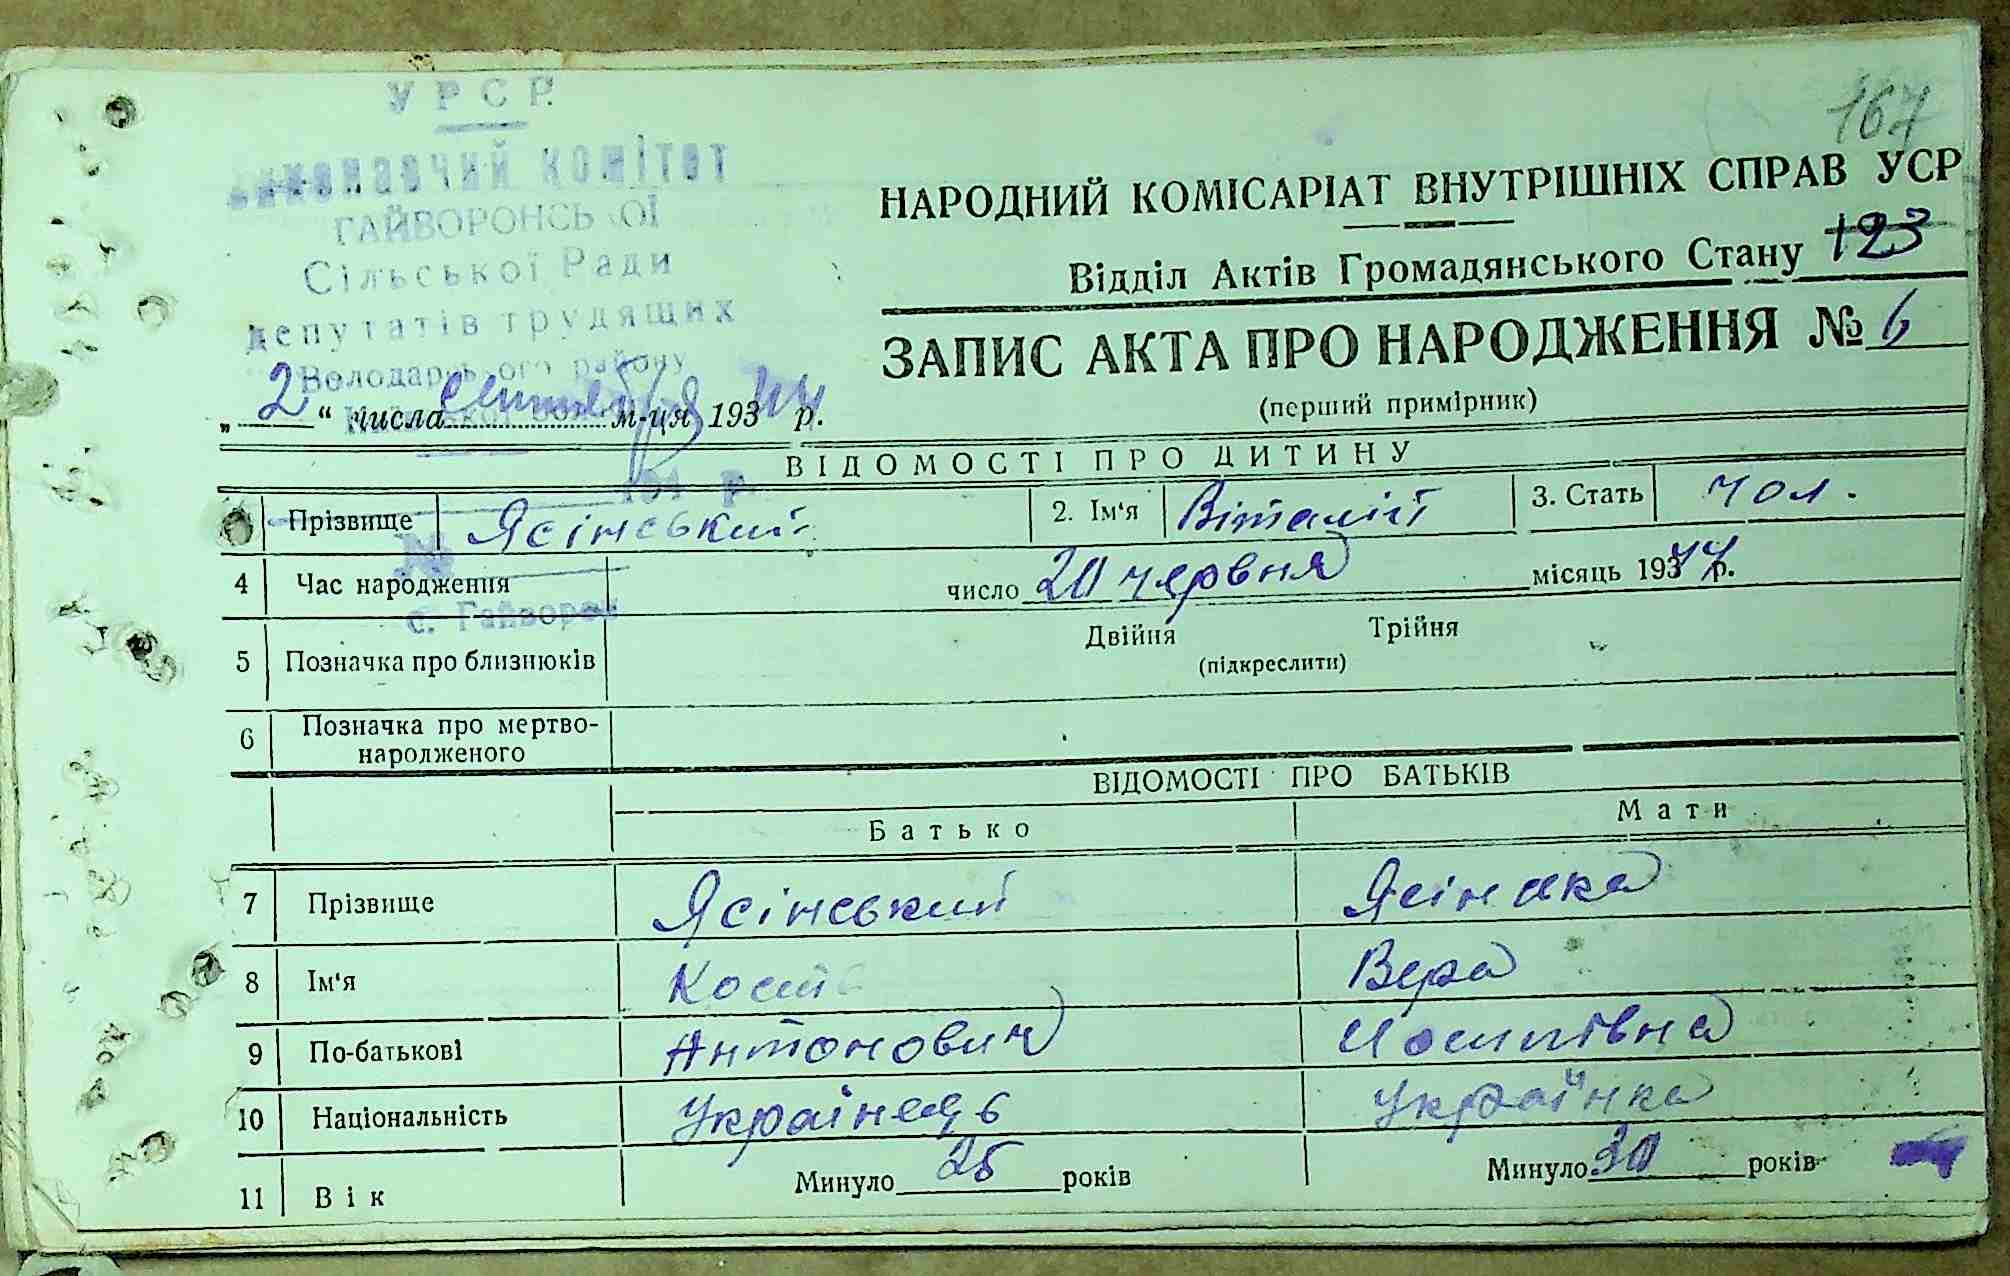 167
УРСР
виконавчий комітет
ГАЙВОРОНСЬКОЇ
Сільської Ради
депутатів трудящих
Володарського району
НАРОДНИЙ КОМІСАРІАТ ВНУТРІШНІХ СПРАВ УСР
Відділ Актів Громадянського Стану 123
ЗАПИС АКТА ПРО НАРОДЖЕННЯ № 6
(перший примірник)
„2“ числа Сентября м-ця 1944 р.
194 р.
ВІДОМОСТІ ПРО ДИТИНУ
Прізвище Ясінський 2. Ім'я Віталій 3. Стать чол.
№
4 Час народження число 20 червня місяць 1944 р.
с. Гайворон
5 Позначка про близнюків Двійня Трійня
(підкреслити)
6 Позначка про мертво-
народженого
ВІДОМОСТІ ПРО БАТЬКІВ
Батько Мати
7 Прізвище Ясінський Ясінська
8 Ім'я Кость Вера
9 По-батькові Антонович Йосипівна
10 Національність Українець Українка
11 Вік Минуло 25 років Минуло 30 років